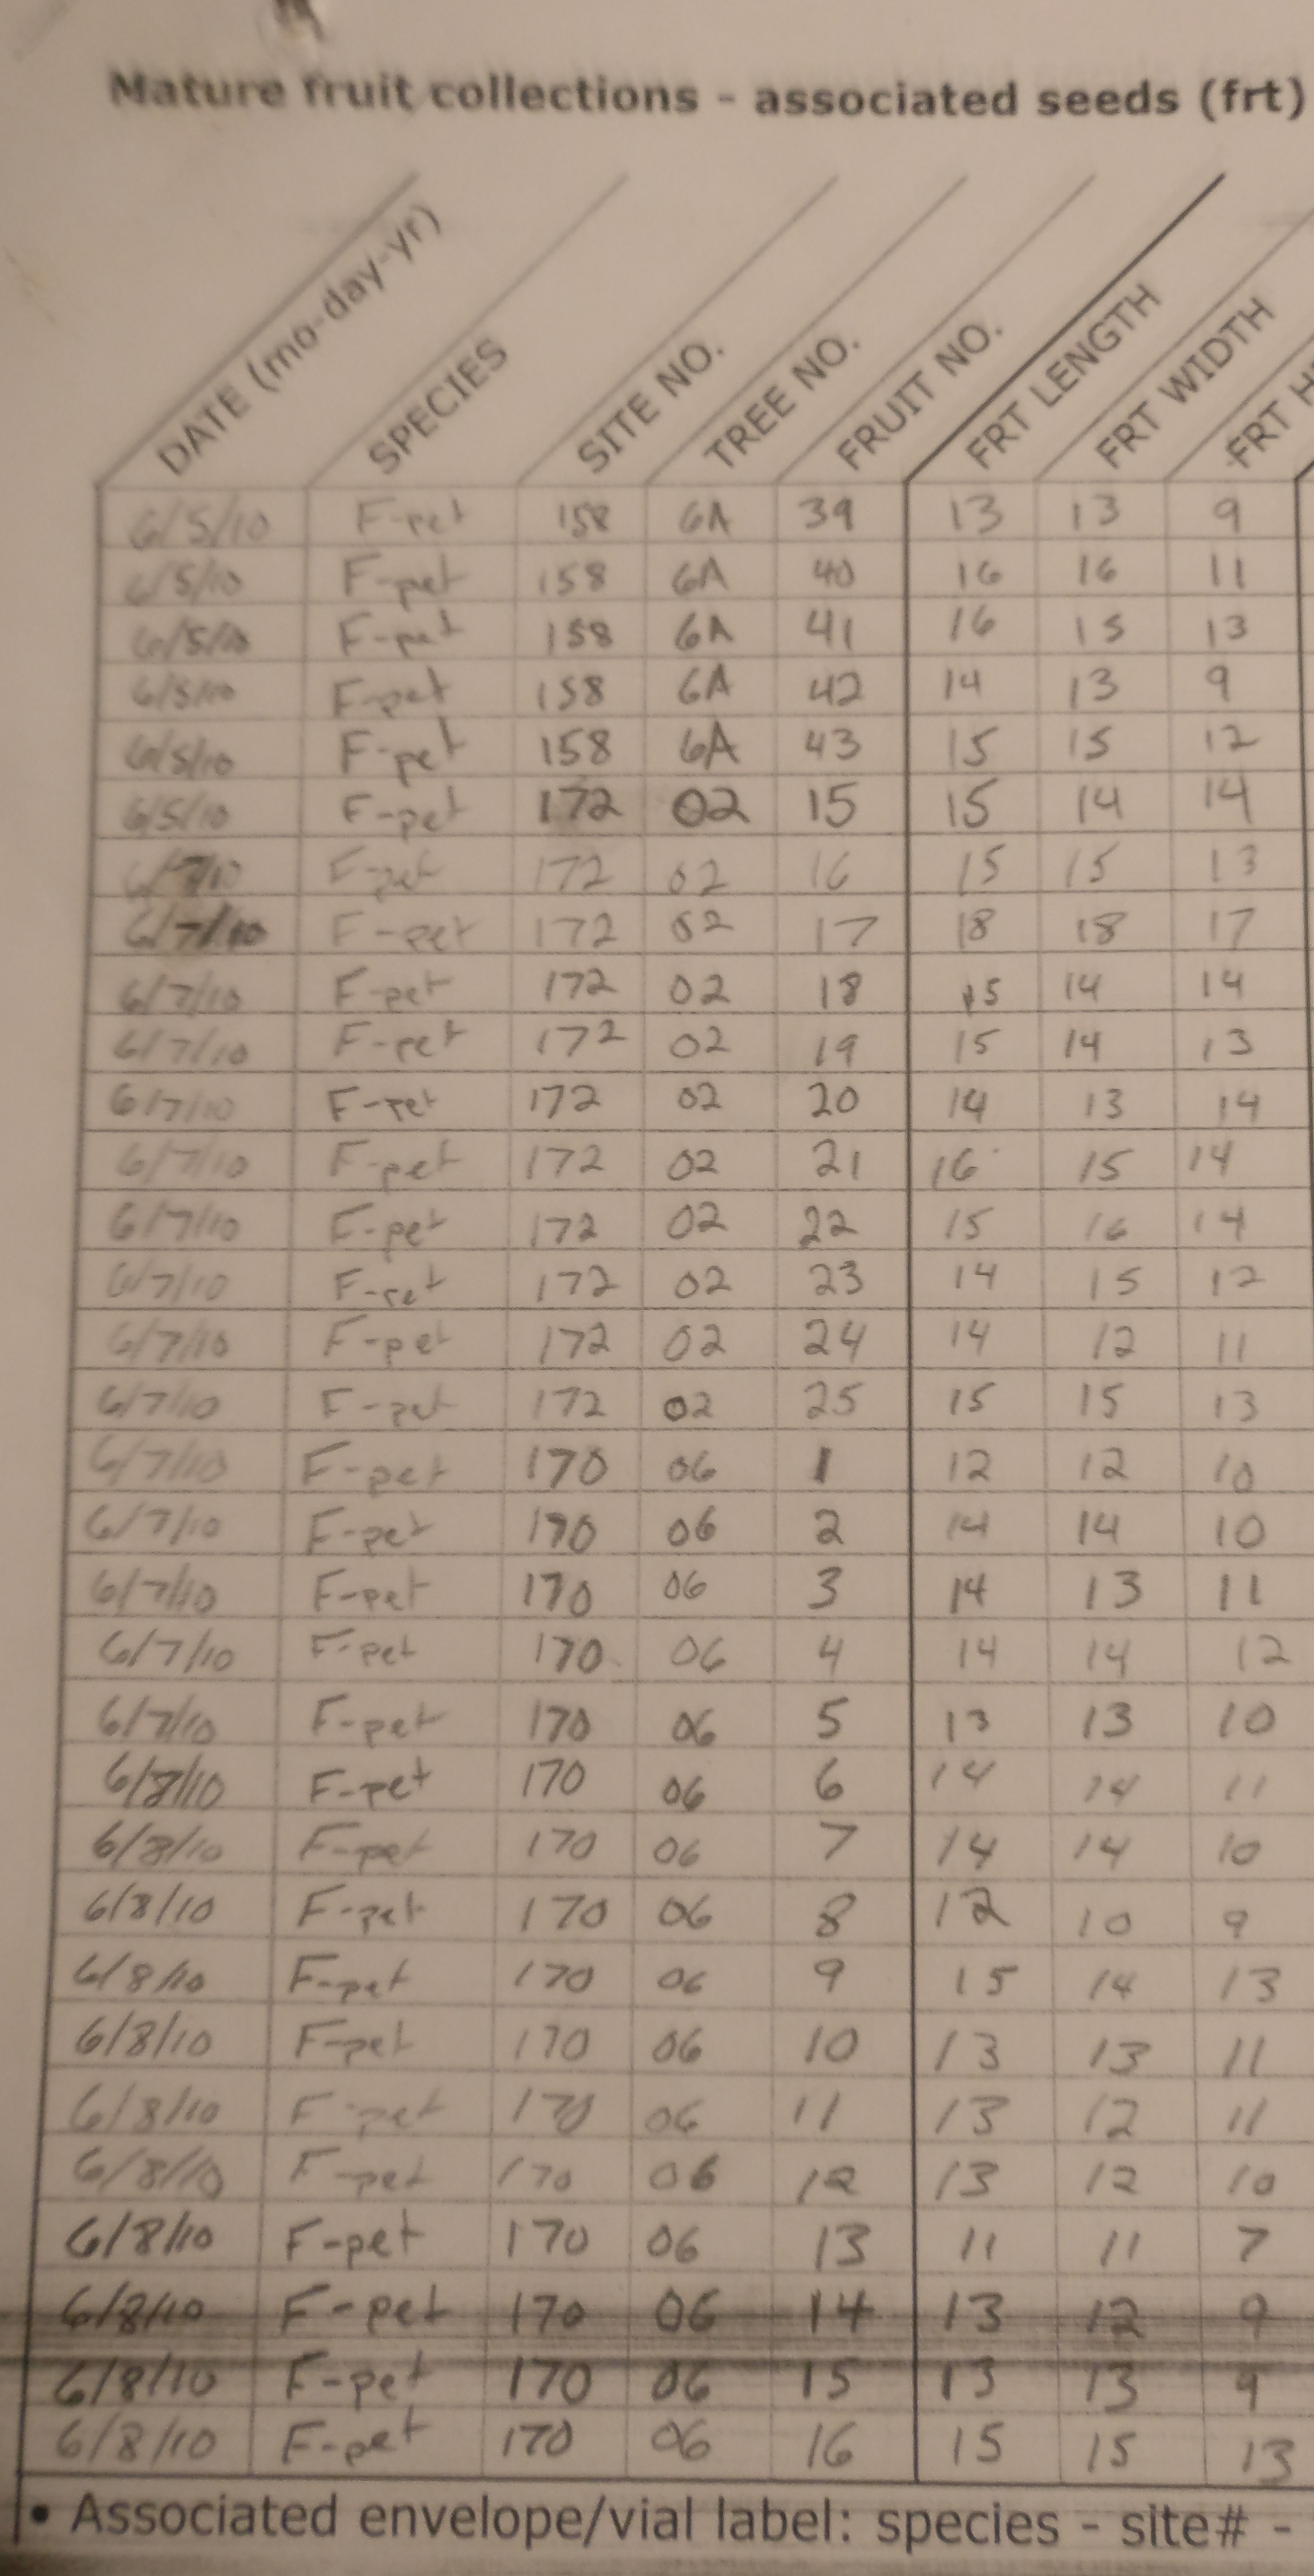 Mature fruit collections - associated seeds (frt)
DATE (mo-day-yr) SPECIES SITE NO. TREE NO. FRUIT NO. FRT LENGTH FRT WIDTH FRT
6/5/10 F-pet 158 6A 39 13 13 9
6/5/10 F-pet 158 6A 40 16 16 11
6/5/10 F-pet 158 6A 41 16 15 13
6/5/10 F-pet 158 6A 42 14 13 9
6/5/10 F-pet 158 6A 43 15 15 12
6/5/10 F-pet 172 02 15 15 14 14
6/7/10 F-pet 172 02 16 15 15 13
6/7/10 F-pet 172 02 17 18 18 17
6/7/10 F-pet 172 02 18 15 14 14
6/7/10 F-pet 172 02 19 15 14 13
6/7/10 F-pet 172 02 20 14 13 14
6/7/10 F-pet 172 02 21 16 15 14
6/7/10 F-pet 172 02 22 15 16 14
6/7/10 F-pet 172 02 23 14 15 12
6/7/10 F-pet 172 02 24 14 12 11
6/7/10 F-pet 172 02 25 15 15 13
6/7/10 F-pet 170 06 1 12 12 10
6/7/10 F-pet 170 06 2 14 14 10
6/7/10 F-pet 170 06 3 14 13 11
6/7/10 F-pet 170 06 4 14 14 12
6/7/10 F-pet 170 06 5 13 13 10
6/8/10 F-pet 170 06 6 14 14 11
6/8/10 F-pet 170 06 7 14 14 10
6/8/10 F-pet 170 06 8 12 10 9
6/8/10 F-pet 170 06 9 15 14 13
6/8/10 F-pet 170 06 10 13 13 11
6/8/10 F-pet 170 06 11 13 12 11
6/8/10 F-pet 170 06 12 13 12 10
6/8/10 F-pet 170 06 13 11 11 7
6/8/10 F-pet 170 06 14 13 12 9
6/8/10 F-pet 170 06 15 13 13 9
6/8/10 F-pet 170 06 16 15 15 13
• Associated envelope/vial label: species - site# -